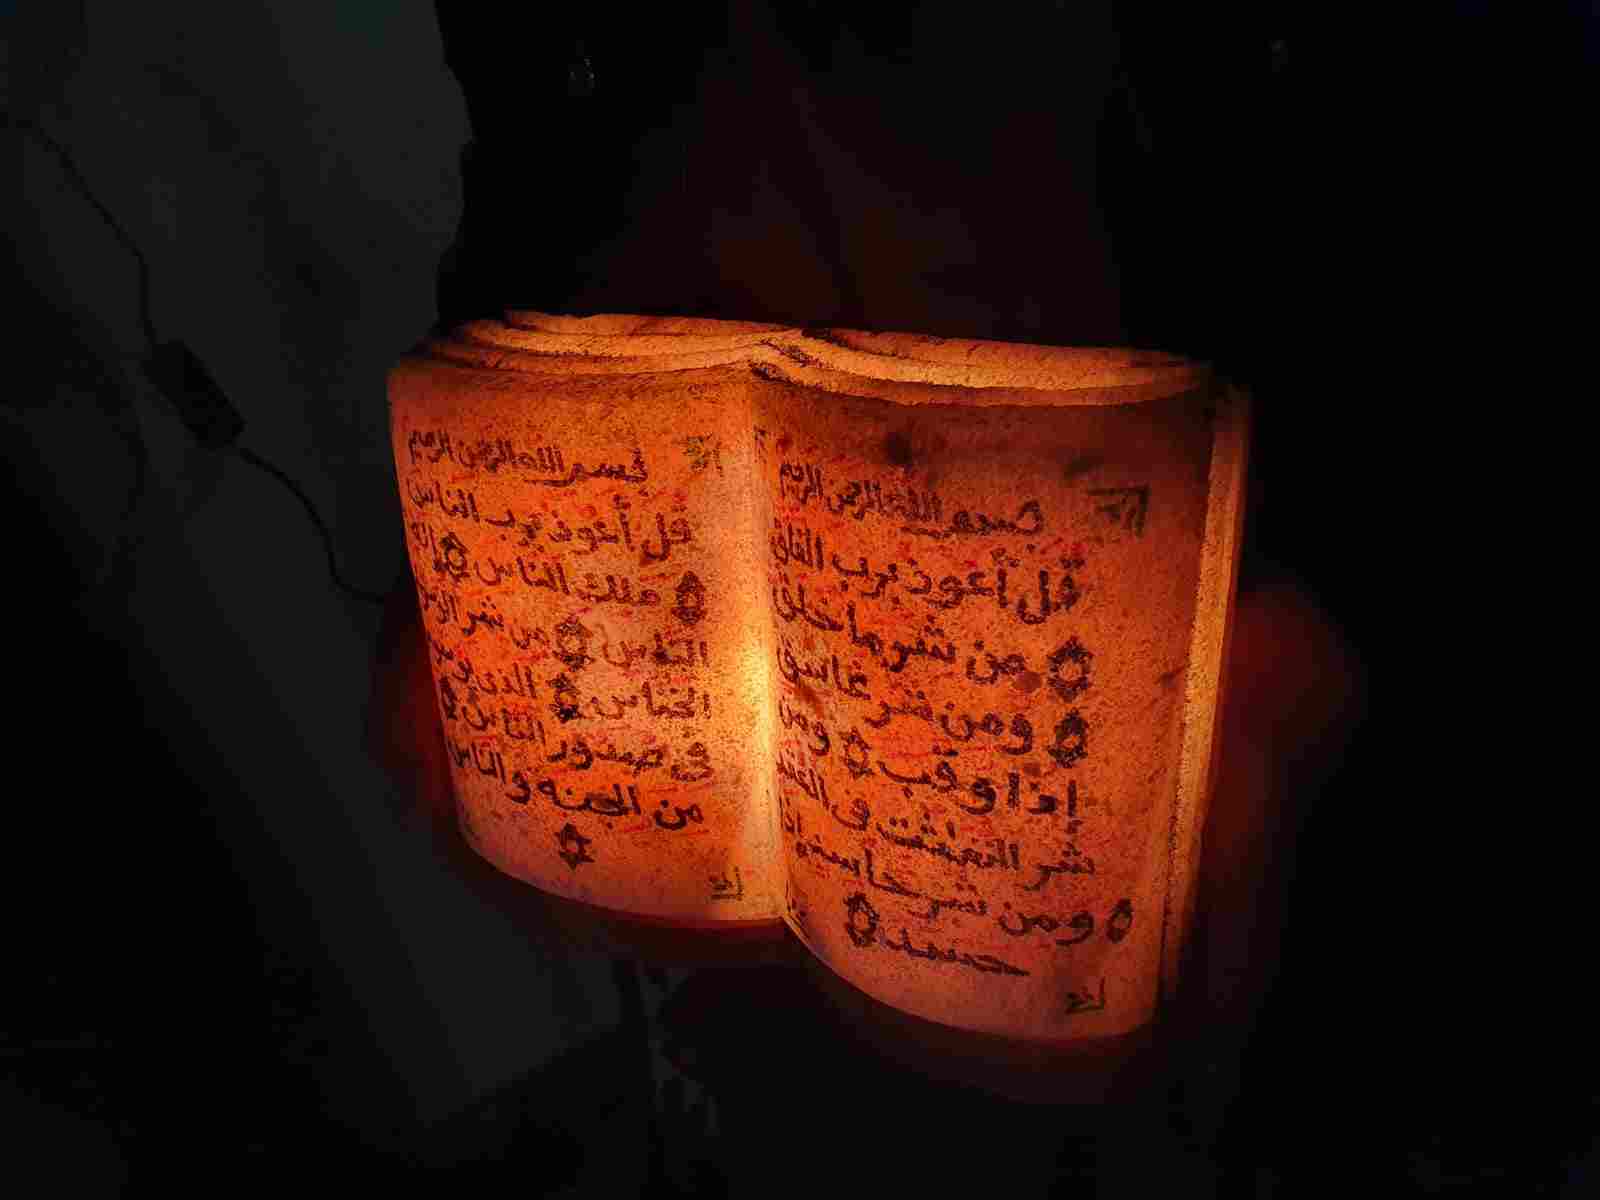 بسم الله الرحمن الرحيم
قل أعوذ برب الفلق
من شر ما خلق
ومن شر غاسق
إذا وقب ومن
شر النفثت فى العقد
ومن شر حاسد إذا
حسد
بسم الله الرحمن الرحيم
قل أعوذ برب الناس
ملك الناس إله
الناس من شر الوس
الخناس الذى يوس
فى صدور الناس
من الجنه والناس